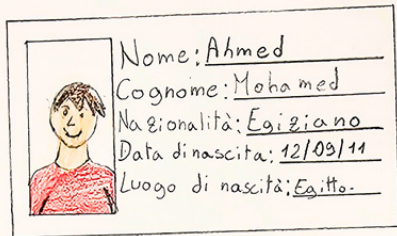 Nome: Ahmed
Cognome: Mohamed
Nazionalità: Egiziano
Data di nascita: 12/09/11
Luogo di nascità: Egitto.